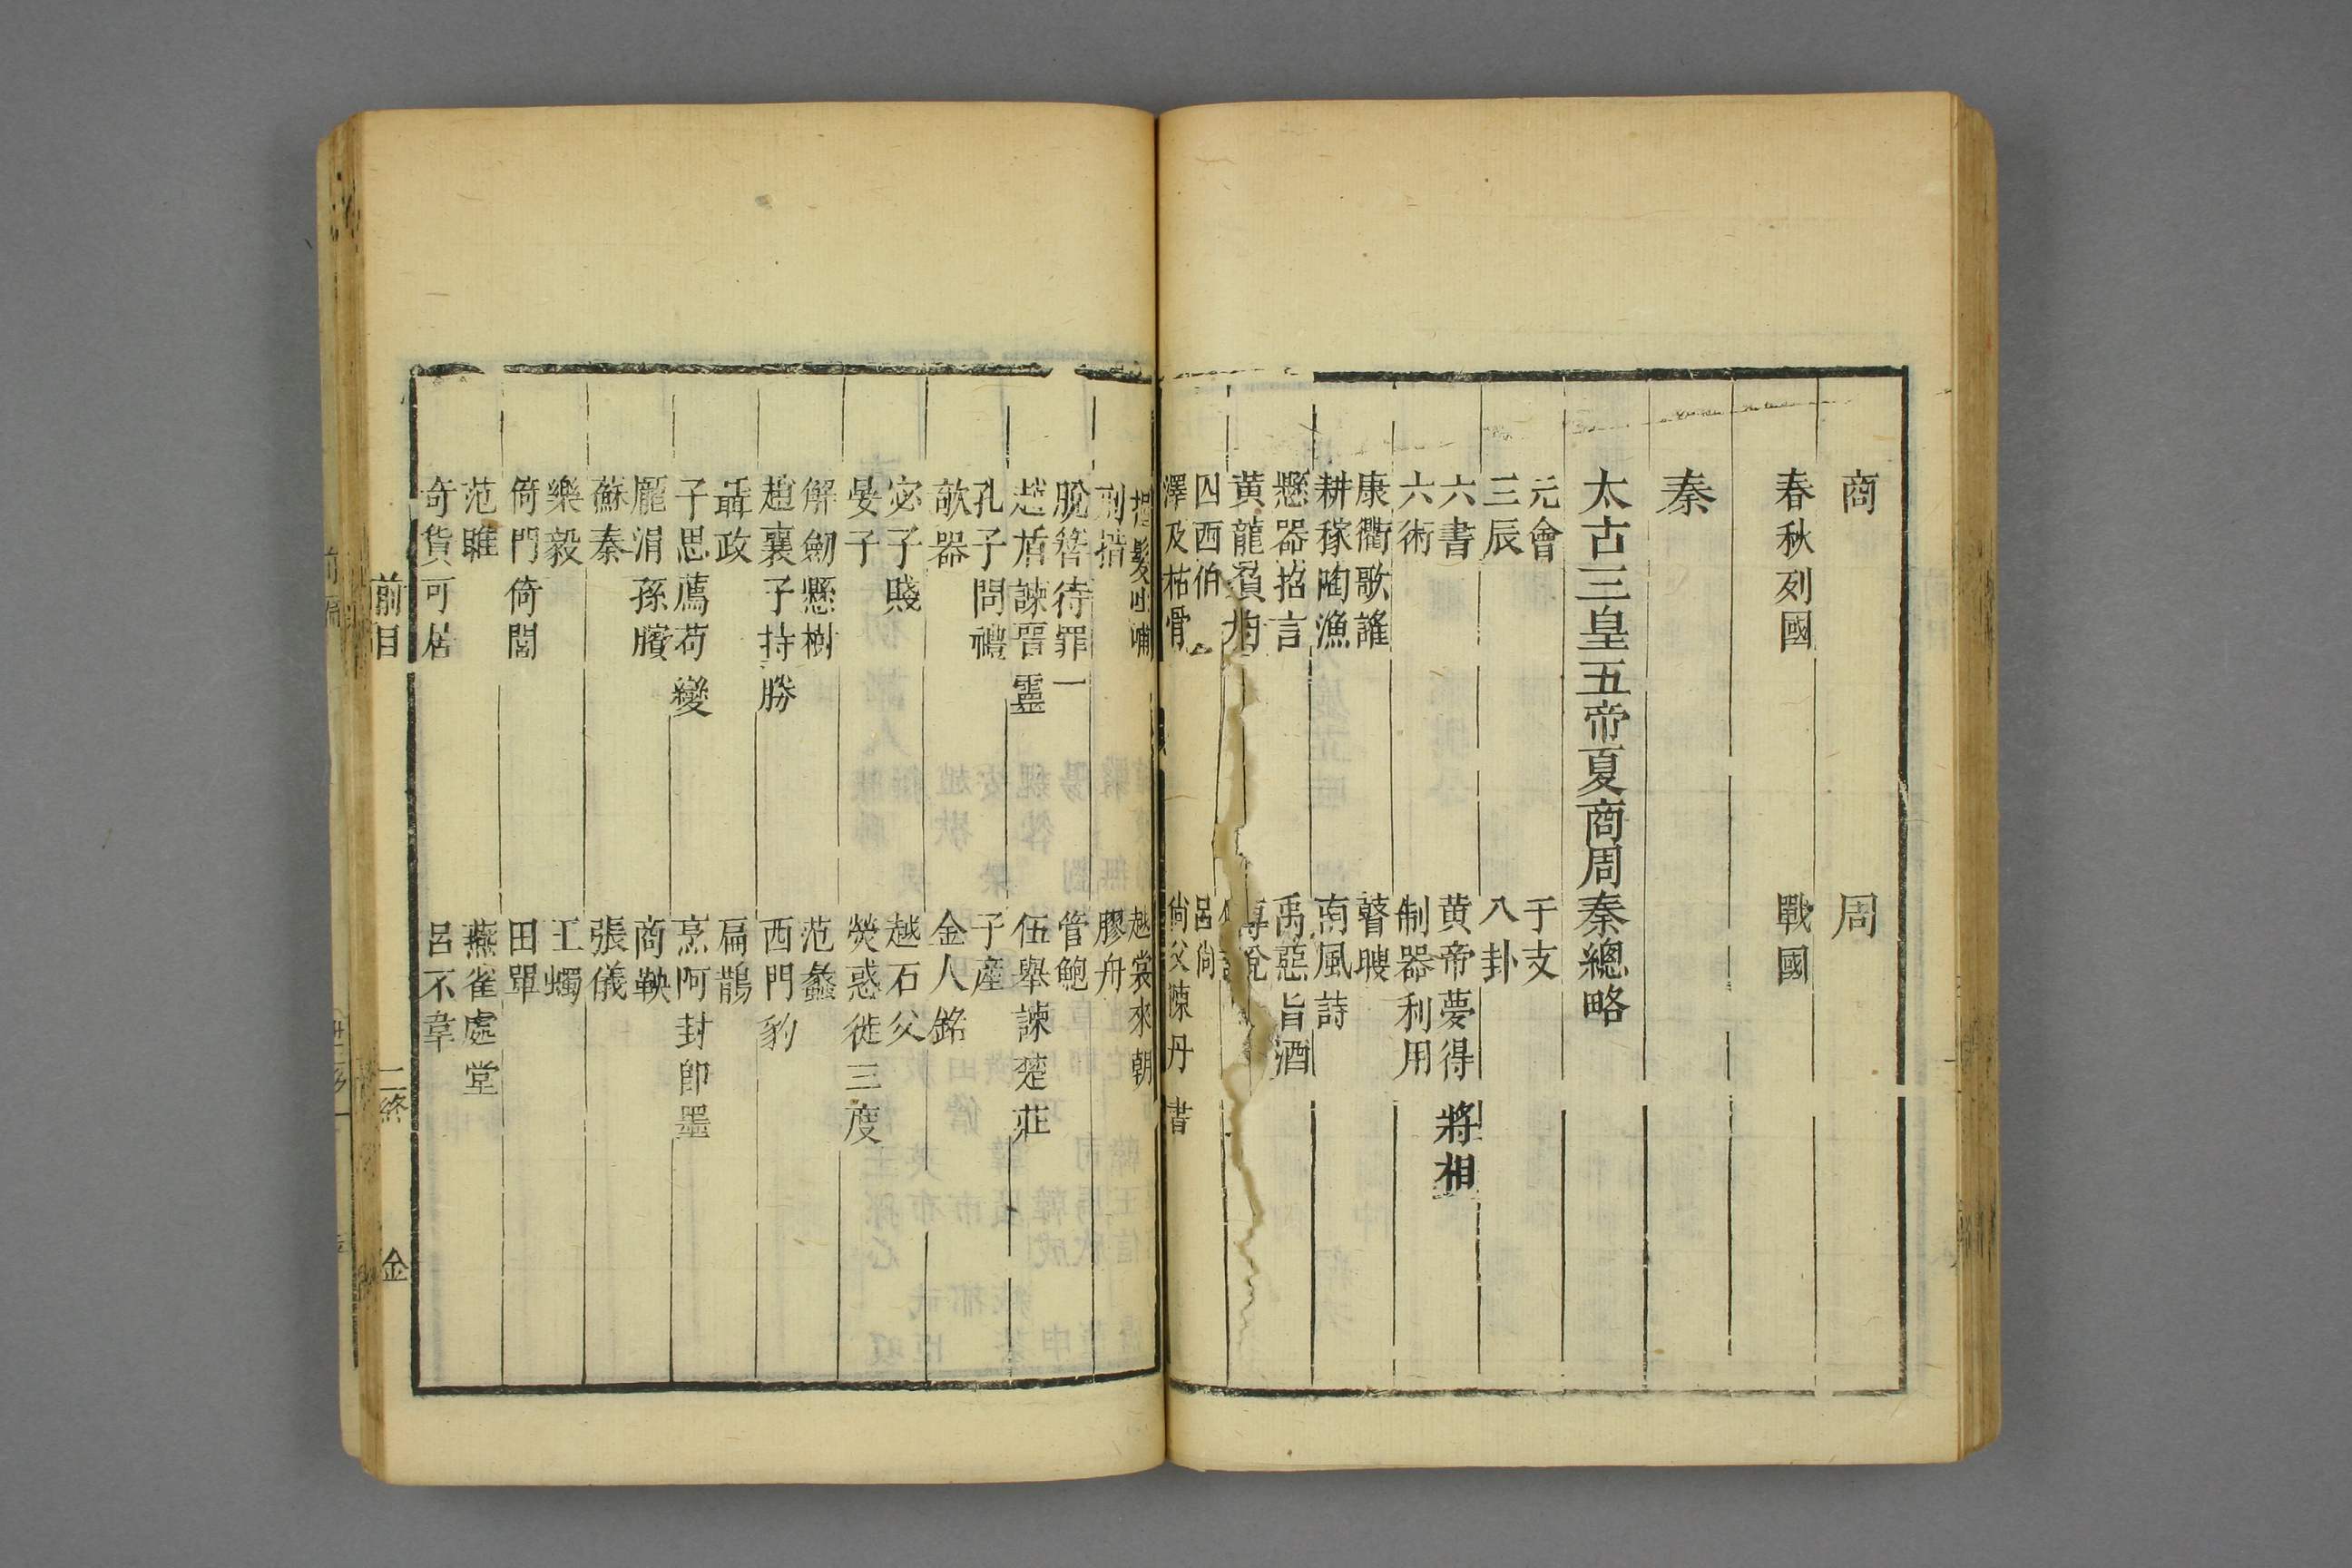 商　周
春秋列國　戰國
秦
太古三皇五帝夏商周秦總略
元會　干支
三辰　八卦
六書　黄帝夢得將相
六術　制器利用
康衢歌謠　瞽瞍
耕稼陶漁　南風詩
懸器招言　禹惡旨酒
黄龍負舟　傅說
四西伯　呂尙
澤及枯骨　尙父陳丹書
握髮吐哺　越裳來朝
刑措　膠舟
脫簪待罪　管鮑
趙盾諫晋靈　伍舉諫楚莊
孔子問禮　子產
欹器　金人銘
宓子賤　越石父
晏子　熒惑徙三度
解劒懸樹　范蠡
趙襄子持勝　西門豹
聶政　扁鵲
子思薦苟變　烹阿封卽墨
龐涓孫臏　商鞅
蘇秦　張儀
樂毅　王蠋
倚門倚閭　田單
范雎　燕雀處堂
奇貨可居　呂不韋
前目　二終　金